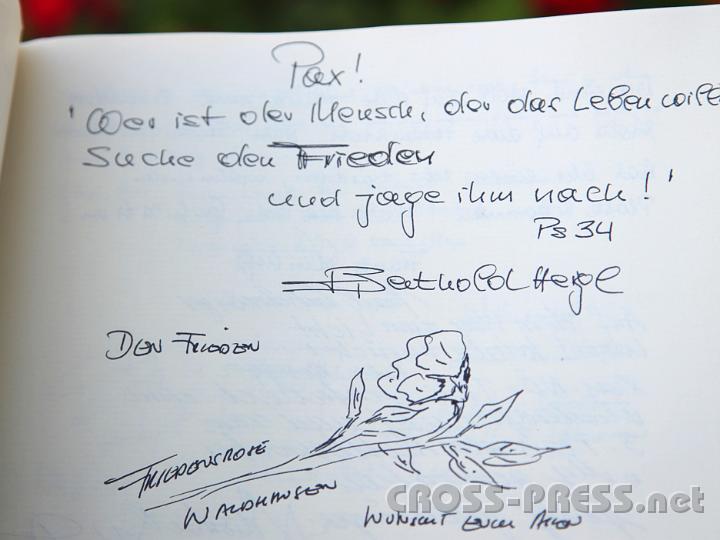 Pax!
'Wer ist der Mensch, der das Leben will?
Suche den Frieden
und jage ihm nach!'
Ps 34
Berthold Heigl
DEN FRIEDEN
FRIEDENSROSE
WALDHAUSEN
WÜNSCHT EUCH ALLEN
CROSS-PRESS.net